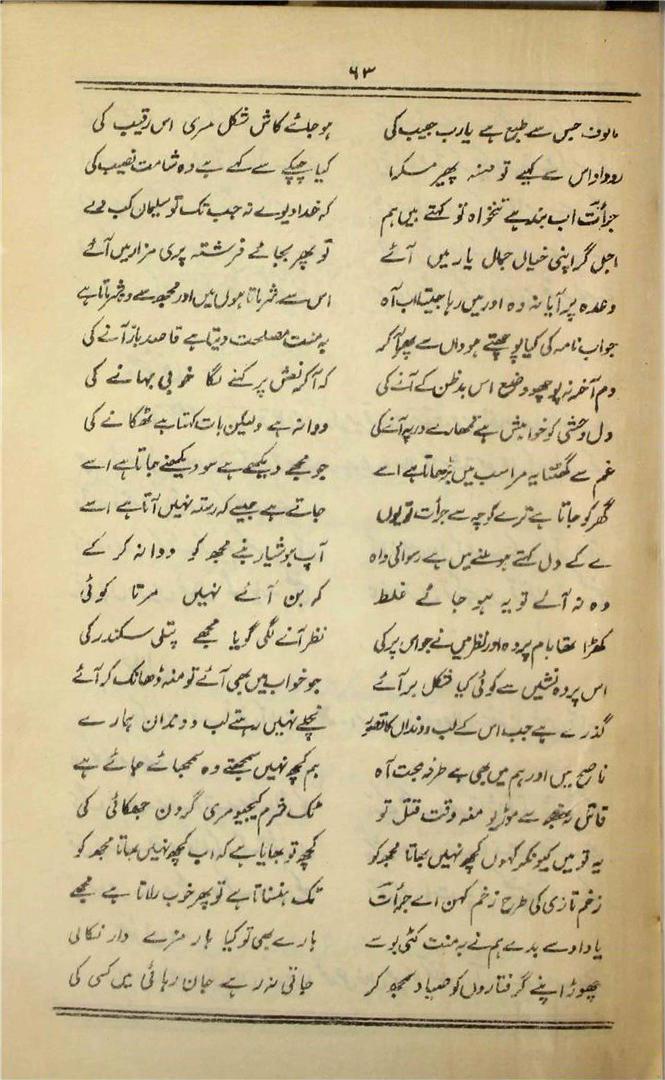 ۶۳
مالوف جس سے طبع ہے یارب حبیب کی ہو جائے کاش شکل مری اس رقیب کی
روداد اس سے کہیے تو منہ پھیر مسکرا کیا چپکے سے کہے ہے وہ شامت نصیب کی
جرأت اب بند ہے تنخواہ تو کہتے ہیں ہم کہ خدا دیوے نہ جب تک تو سلیماں کب دے
اجل گر اپنی خیال جمال یار میں آئے تو پھر بجائے فرشتہ پری مزار میں آئے
وعدہ پر آیا نہ وہ اور میں رہا جیتا اب آہ اس سے شرماتا ہوں میں اور مجھ سے وہ شرماتا ہے
جواب نامہ کی کیا پوچھتے ہو واں سے پھر آ کر بہ منت مصلحت دیتا ہے قاصد باز آنے کی
دم آخر نہ پوچھو وضع اس بدظن کے آنے کی کہ آ کر نعش پر کہنے لگا خوبی بہانے کی
دل وحشی کو خواہش ہے تمھارے در پہ آنے کی دوانہ ہے ولیکن بات کہتا ہے ٹھکانے کی
غم سے گھٹتا یہ مرا سب میں بڑھاتا ہے اسے جو مجھے دیکھے ہے سو دیکھنے جاتا ہے اسے
گھر کو جاتا ہے ترے کوچہ سے جرأت تو یوں جاتے ہے جیسے کہ رستہ نہیں آتا ہے اسے
لے کے دل کہتے ہو ملنے میں ہے رسوائی واہ آپ ہوشیار بنے مجھ کو دوانہ کر کے
وہ نہ آئے تو یہ ہو جائے غلط کہ بن آئے نہیں مرتا کوئی
کھڑا تھا بام پر وہ اور نظر میں نے جو اس پر کی نظر آنے لگی گویا مجھے پتلی سکندر کی
اس پردہ نشیں سے کوئی کیا شکل بر آئے جو خواب میں بھی آئے تو منہ ڈھانک کر آئے
گذرے ہے جب اس کے لب و دنداں کا تصور نچلے نہیں رہتے لب و دندان ہمارے
ناصح میں اور ہم میں بھی ہے طرفہ صحبت آہ ہم کچھ نہیں سمجھتے وہ سمجھائے جائے ہے
قاتل نہ مجھ سے موڑیو منہ وقت قتل تو ٹک شرم کیجیو مری گردن جھکائی کی
یہ تو میں کیونکر کہوں کچھ نہیں بھاتا مجھ کو کچھ تو بھایا ہے کہ اب کچھ نہیں بھاتا مجھ کو
زخم تازی کی طرح زخم کہن اے جرأت ٹک ہنساتا ہے تو پھر خوب رلاتا ہے مجھے
یا داد سے بدے ہم نے بہ منت کئی بوسے بارے بھی تو کیا ہار مزے دار نکالی
چھوڑ اپنے گرفتاروں کو صیاد سمجھ کر جاتی نہ رہے جان رہائی میں کسی کی